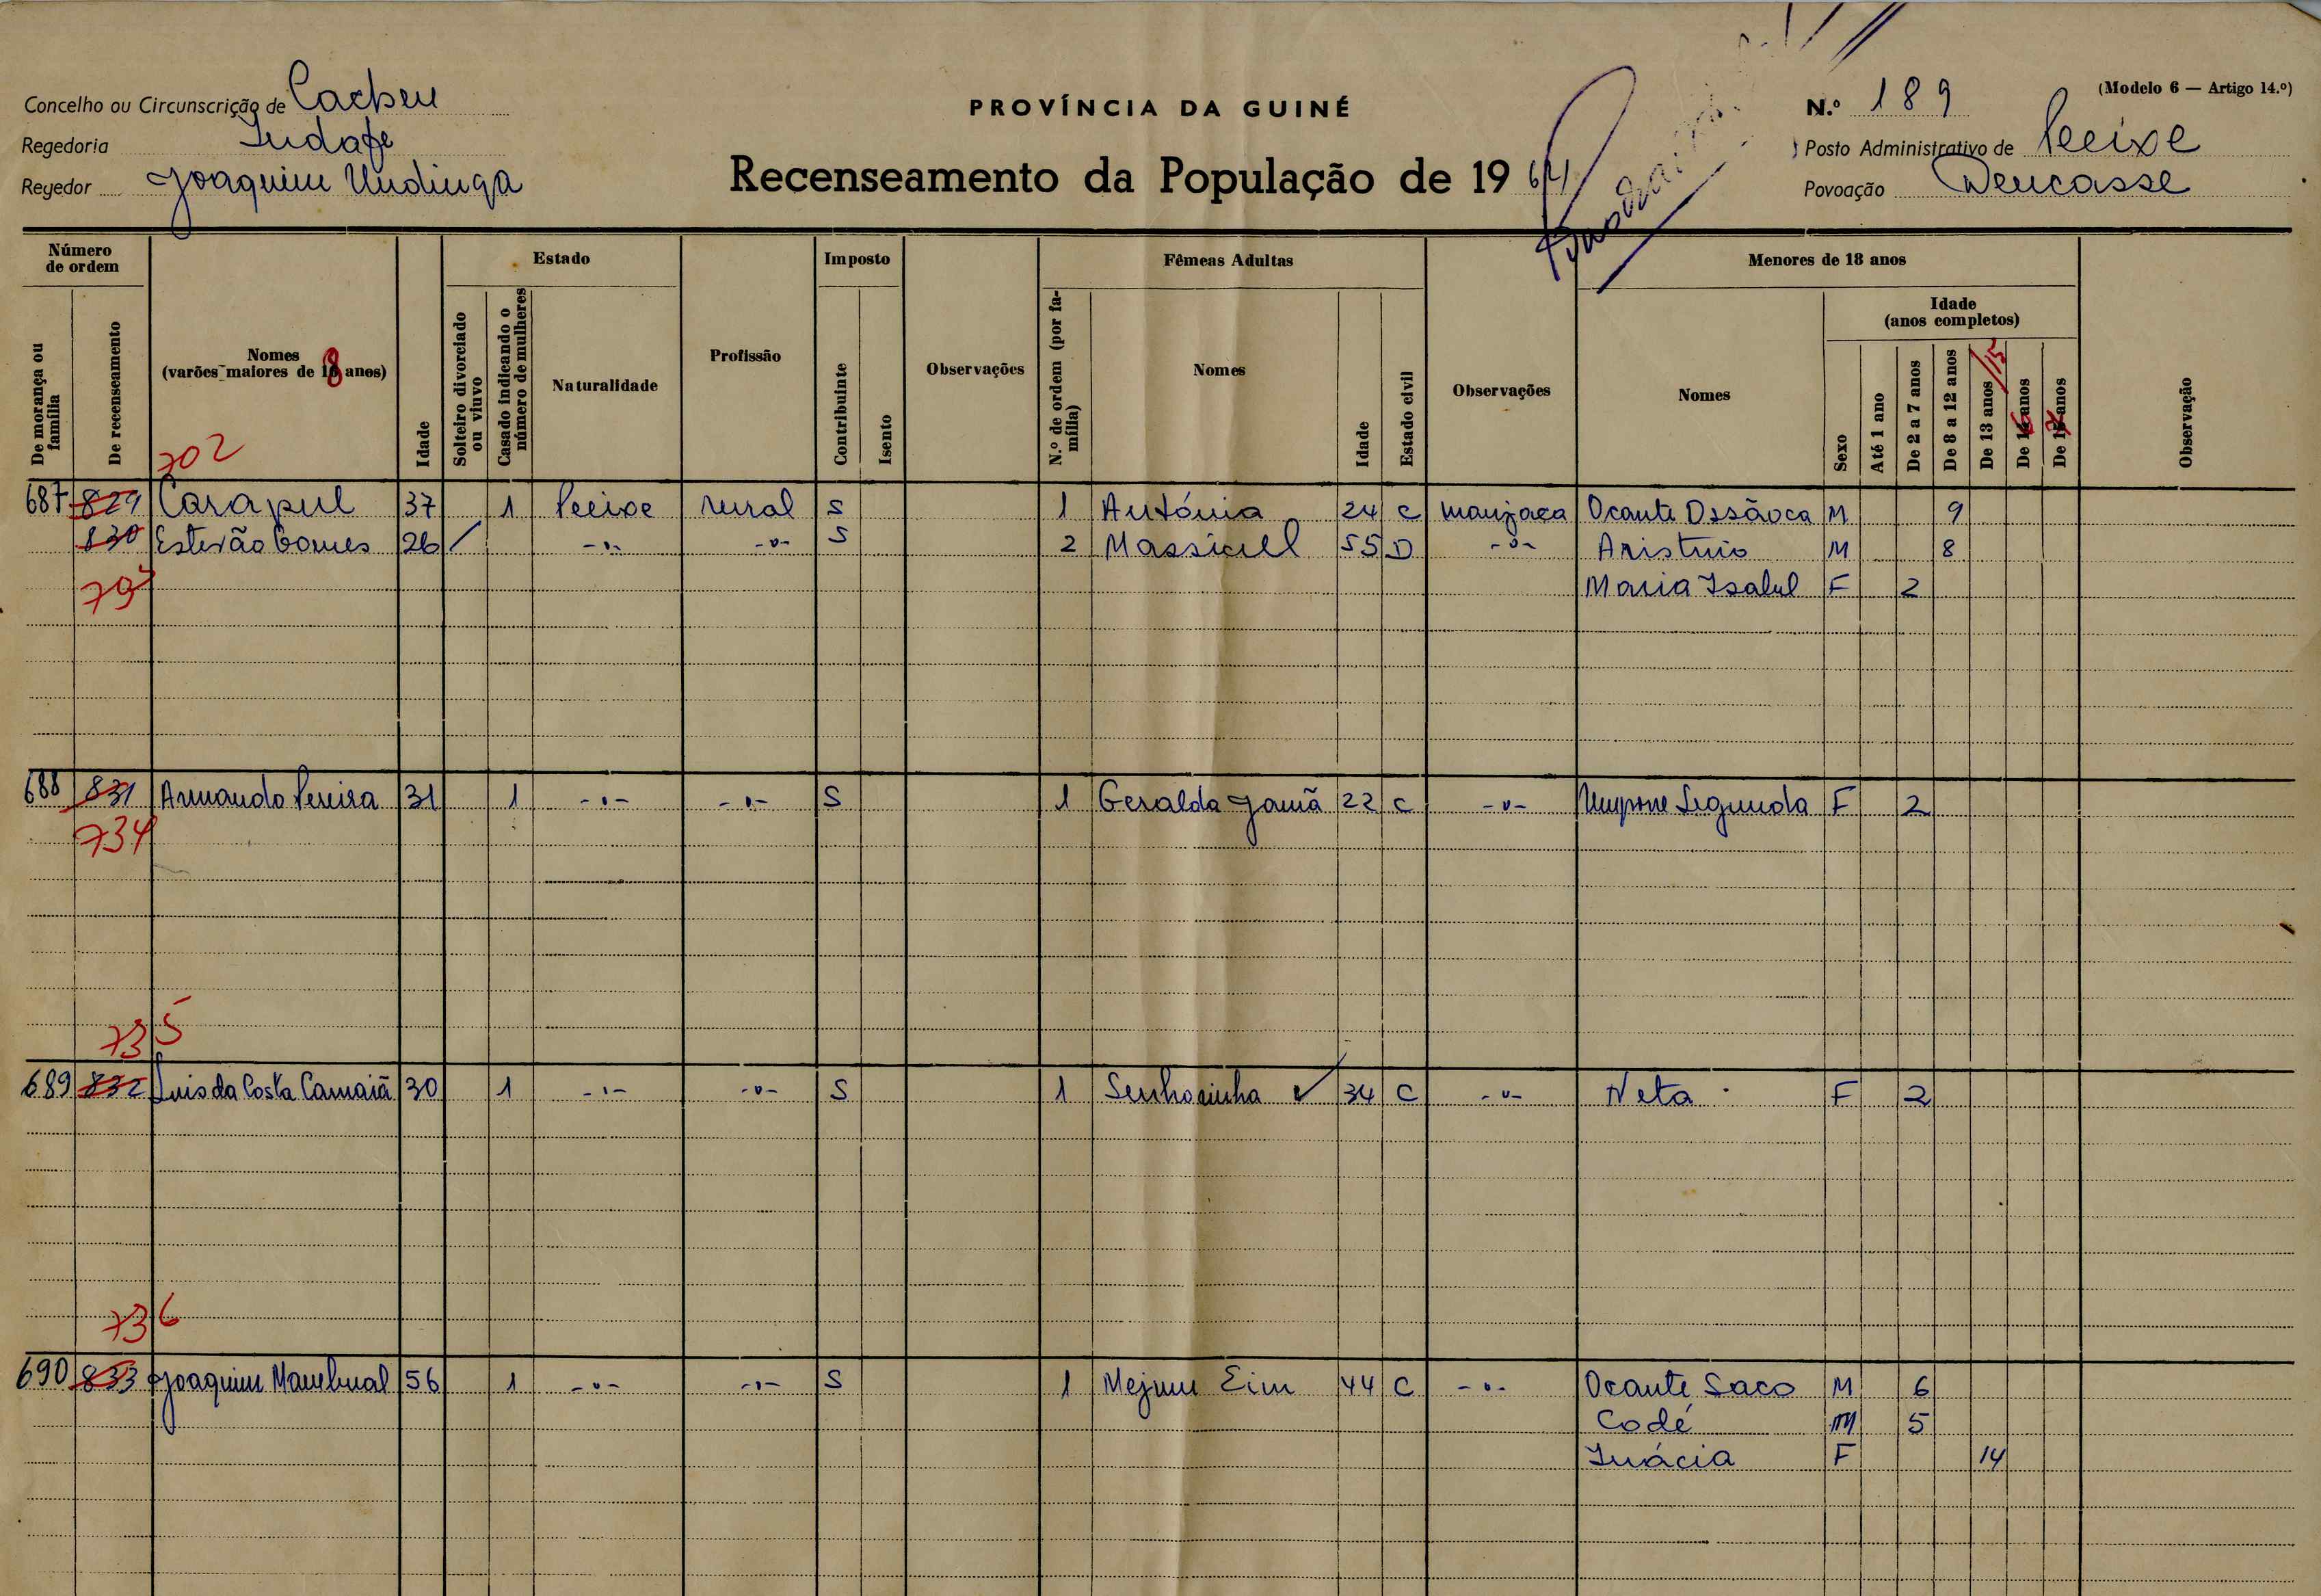 (Modelo 6 — Artigo 14.º)
Concelho ou Circunscrição de Cacheu
PROVÍNCIA DA GUINÉ
N.º 189
Regedoria Indafe
Posto Administrativo de Pecixe
Regedor Joaquim Undinga
Recenseamento da População de 1964
Povoação Dencasse
Número de ordem
De morança ou família
De recenseamento
Nomes (varões maiores de 18 anos)
702
Idade
Estado
Solteiro divorciado ou viuvo
Casado indicando o número de mulheres
Naturalidade
Profissão
Imposto
Contribuinte
Isento
Observações
Fêmeas Adultas
N.º de ordem (por família)
Nomes
Idade
Estado civil
Observações
Menores de 18 anos
Nomes
Sexo
Idade (anos completos)
Até 1 ano
De 2 a 7 anos
De 8 a 12 anos
De 13 anos /15
De 16 anos
De 17 anos
Observação
687 829 Carapul 37 1 Pecixe rural S 1 António 24 C manjaca Ocante Dssãoca M 9
830 Estevão Gomes 26 / -"- -"- S 2 Massiull 55 D -"- Aristuio M 8
Maria Isabel F 2
688 831 Armando Pereira 31 1 -"- -"- S 1 Geralda Jamã 22 C -"- Segunda F 2
734
735
689 832 Luis da Costa Camaiã 30 1 -"- -"- S 1 Senhorinha 34 C -"- Neta F 2
736
690 833 Joaquim Mambual 56 1 -"- -"- S 1 Mejum Eim 44 C -"- Ocante Saco M 6
Codé M 5
Inácia F 14